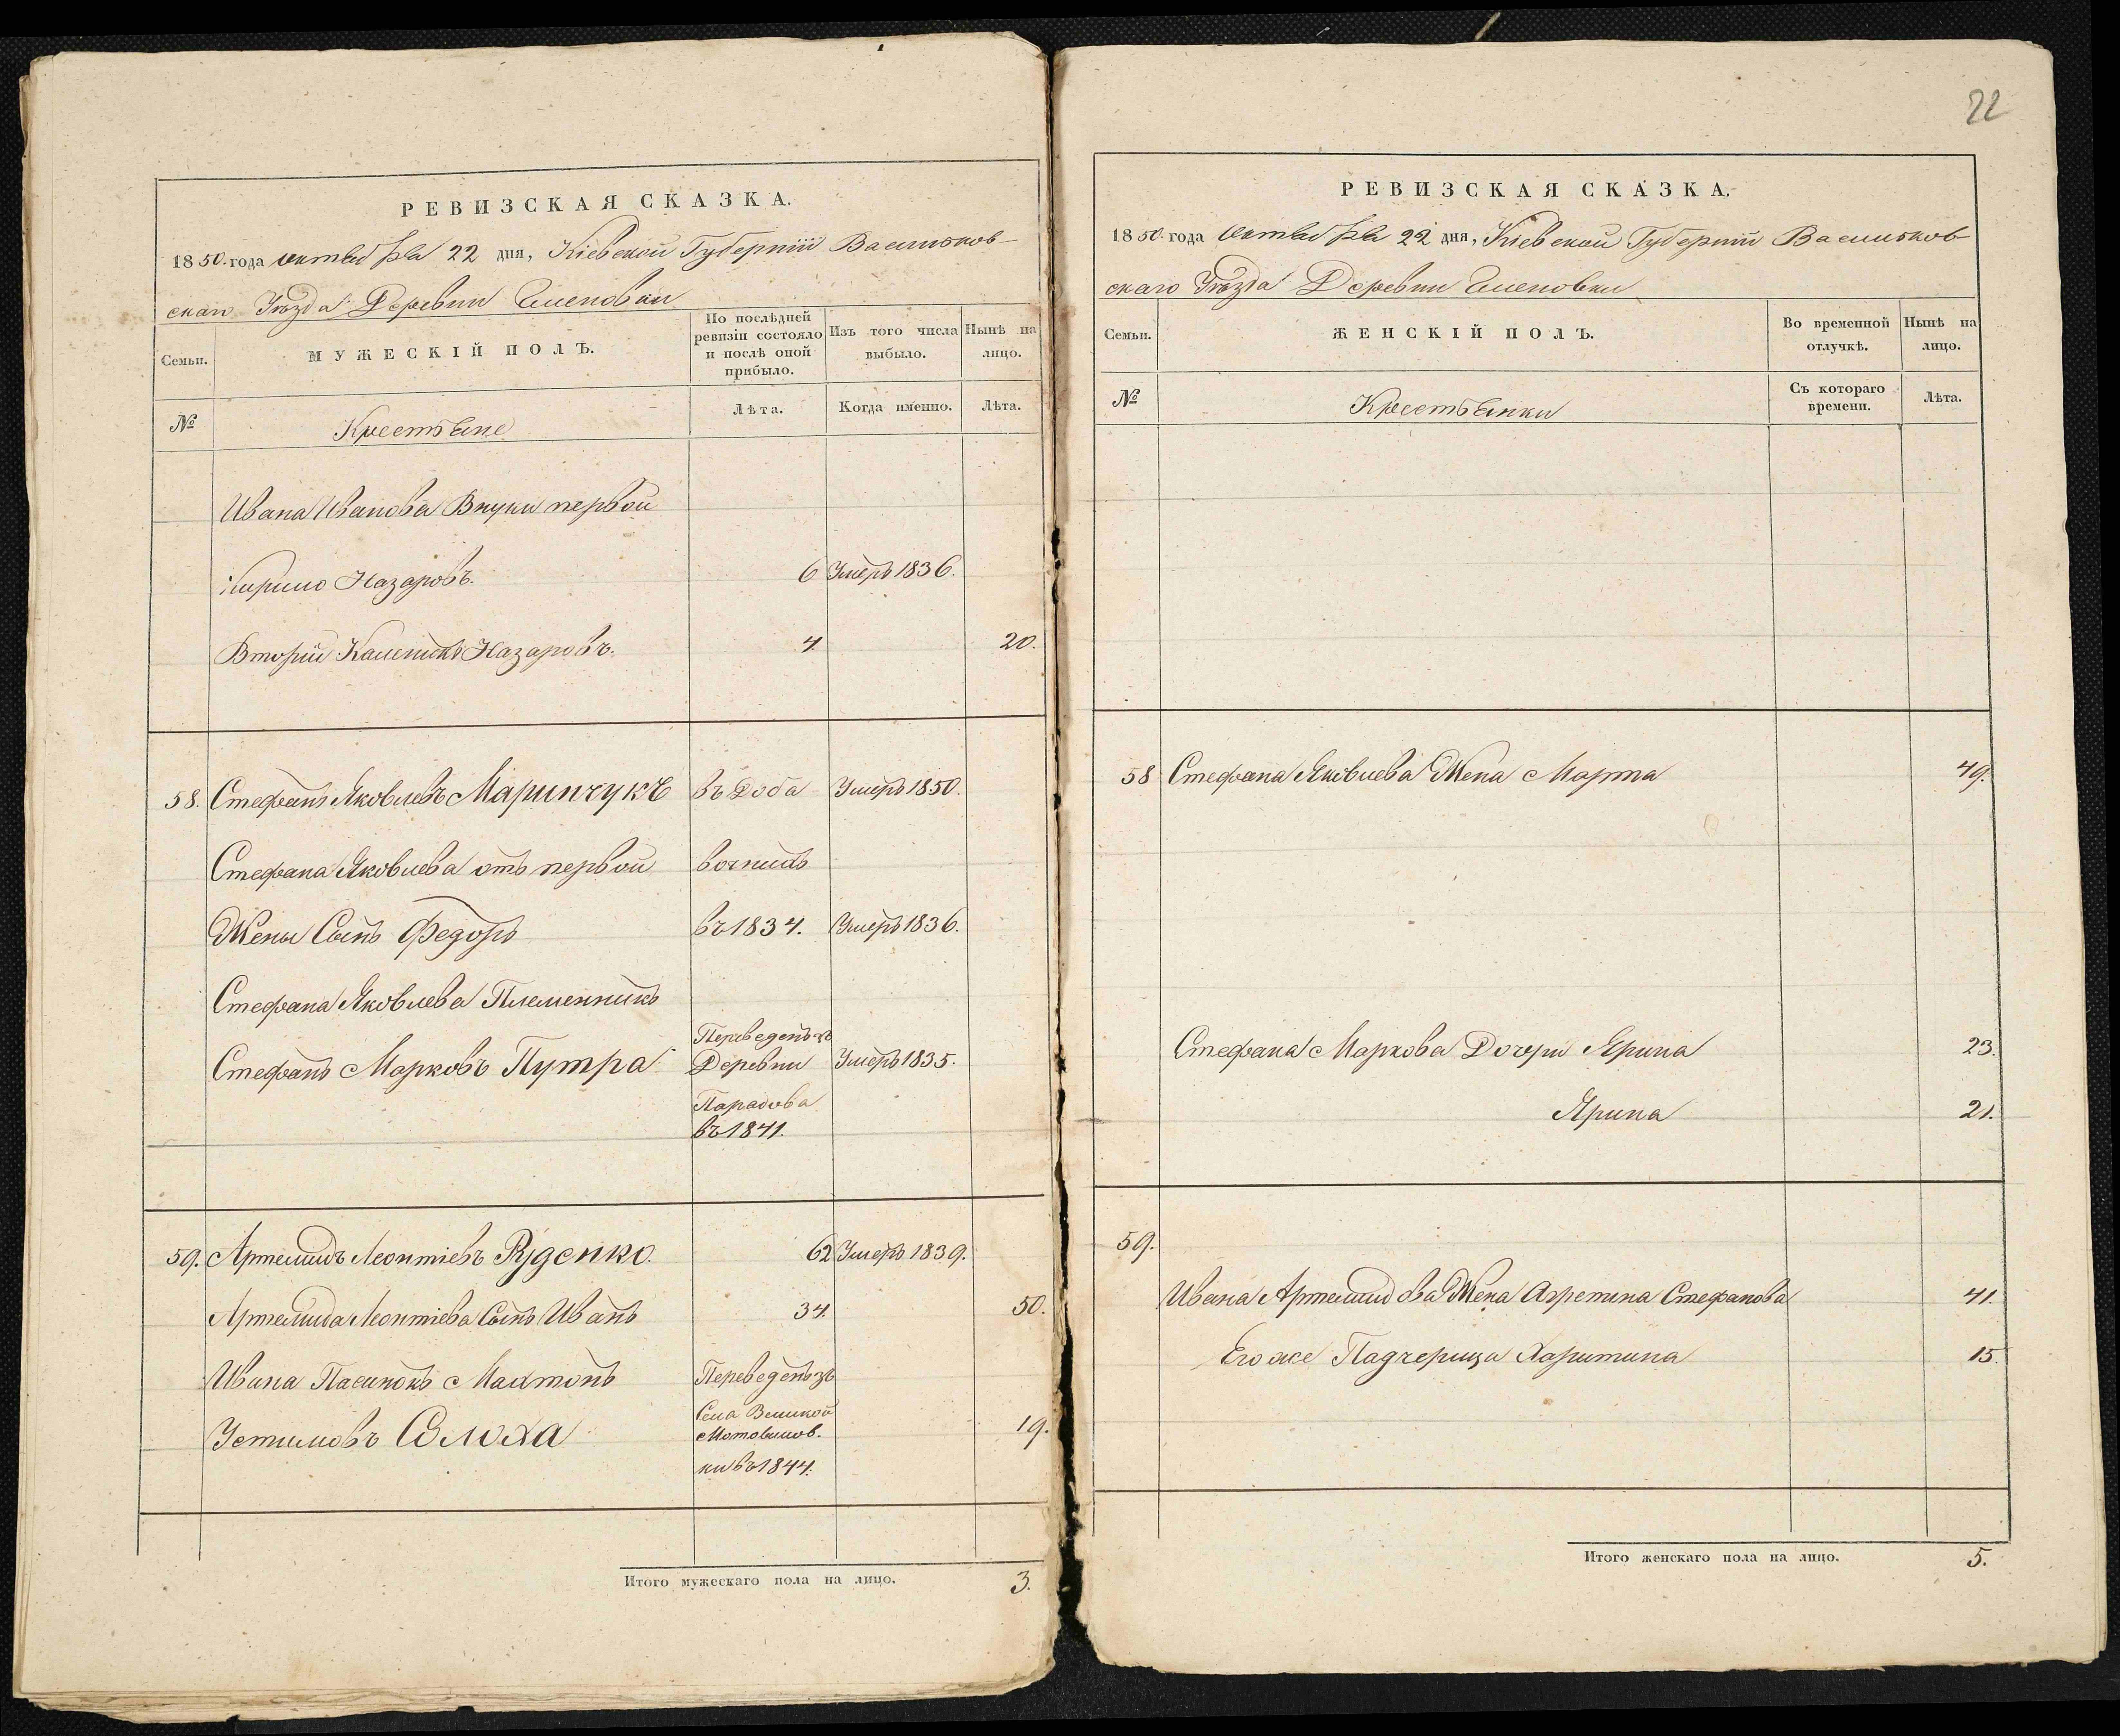 РЕВИЗСКАЯ СКАЗКА.
1850. года октября 22 дня, Кіевской Губерніи Васильков-
скаго Уѣзда Деревни Еленовки
Семьи.
МУЖЕСКІЙ ПОЛЪ.
По послѣдней ревизіи состояло и послѣ оной прибыло.
Изъ того числа выбыло.
Нынѣ на лицо.
№
Крестьяне
Лѣта.
Когда именно.
Лѣта.
Ивана Иванова Внуки первой
Кирило Назаровъ. 6 Умеръ 1836.
Вторий Каленикъ Назаровъ. 4. 20.
58. Стефанъ Яковлевъ Маринчукъ Умеръ 1850.
Стефана Яковлева отъ первой
Жены Сынъ Федоръ въ 1834. Умеръ 1836.
Стефана Яковлева Племенникъ
Стефанъ Марковъ Путра Переведенъ зъ
Деревни Умеръ 1835.
въ 1841.
59. Артемидъ Леонтіевъ Руденко. 62 Умеръ 1839.
Артемида Леонтіева Сынъ Иванъ 34. 50.
Ивана Пасинокъ Переведенъ зъ
Села Великой
Устимовъ Солоха Мотовилов- 19.
ки въ 1844.
Итого мужескаго пола на лицо. 3.
22
РЕВИЗСКАЯ СКАЗКА.
1850. года октября 22 дня, Кіевской Губерніи Васильков-
скаго Уѣзда Деревни Еленовки
Семьи.
ЖЕНСКІЙ ПОЛЪ.
Во временной отлучкѣ.
Нынѣ на лицо.
№
Крестьянки
Съ котораго времени.
Лѣта.
58 Стефана Яковлева Жена Марта 49.
Стефана Маркова Дочери Ярина 23.
Ярина 21.
59.
Ивана Артемидова Жена Агрепина Стефанова 41.
Его же Падчерица Харитина 15.
Итого женскаго пола на лицо. 5.